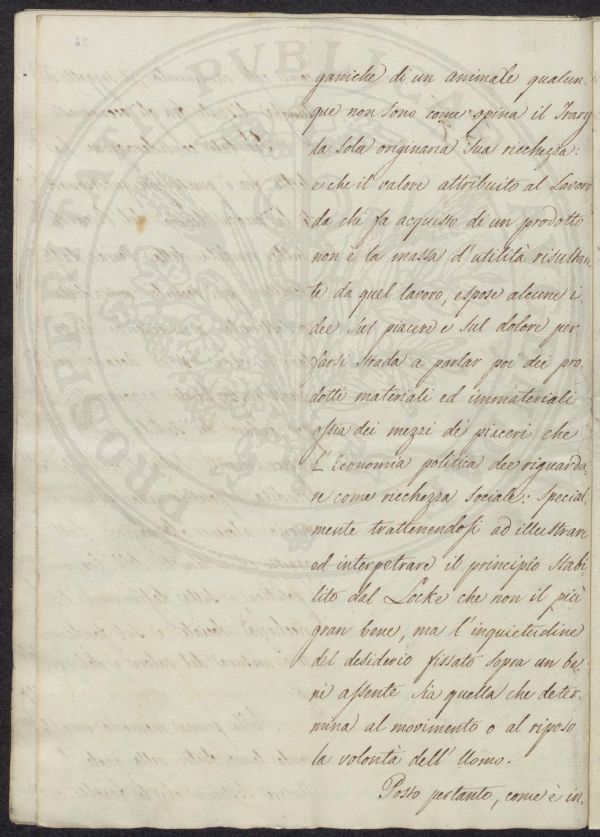 ganiche di un animale qualun-
que non sono come opina il Tracy
la sola originaria sua ricchezza:
e che il valore attribuito al lavoro
da chi fa acquisto di un prodotto
non è la massa d'utilità risultan-
te da quel lavoro, espose alcune i-
dee sul piacere e sul dolore per
farsi strada a parlar poi dei pro-
dotti materiali ed immateriali
ossia dei mezzi de' piaceri che
l'Economia politica dee riguarda-
re come ricchezza sociale: special-
mente trattenendosi ad illustrare
ed interpetrare il principio stabi-
lito dal Locke che non il più
gran bene, ma l'inquietudine
del desiderio fissato sopra un be-
ne assente sia quella che deter-
mina al movimento o al riposo
la volontà dell'Uomo.
Posto pertanto, come è in-